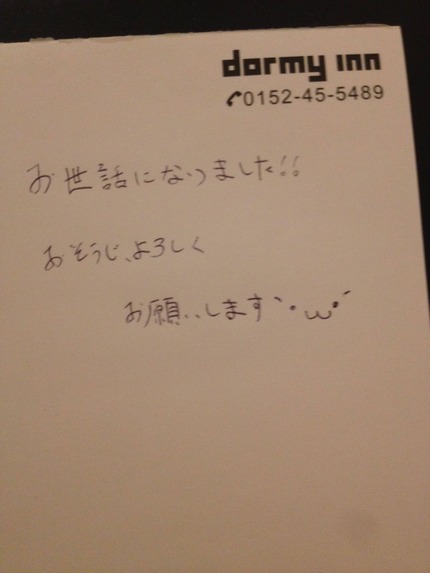 dormy inn
0152-45-5489
お世話になりました!!
おそうじ、よろしく
お願いします`・ω・´